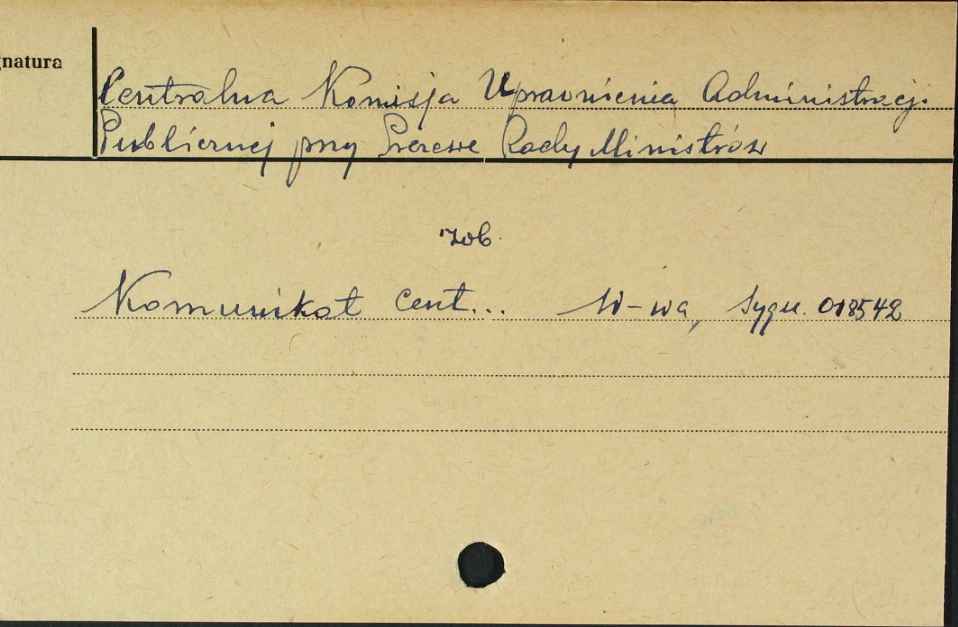 gnatura
Centralna Komisja Usprawnienia Administracji
Publicznej przy Prezesie Rady Ministrów
zob.
Komunikat Cent... W-wa, sygn. 018542